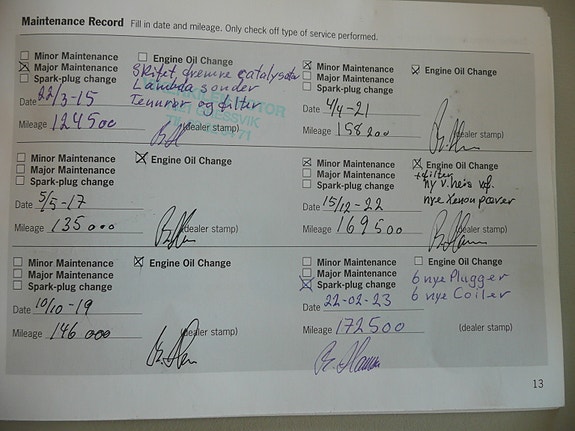 Maintenance Record Fill in date and mileage. Only check off type of service performed.
Minor Maintenance Engine Oil Change
Major Maintenance Skifet, fremre catalysator
Spark-plug change Lambda sonder
Date 22/3-15 Tennrør og filter
Mileage 124500 (dealer stamp)
Minor Maintenance Engine Oil Change
Major Maintenance
Spark-plug change
Date 4/4-21
Mileage 158200 (dealer stamp)
Minor Maintenance Engine Oil Change
Major Maintenance
Spark-plug change
Date 5/5-17
Mileage 135000 (dealer stamp)
Minor Maintenance Engine Oil Change
Major Maintenance +filter
Spark-plug change ny v.heis
Date 15/12-22 nye Xenon pærer
Mileage 169500 (dealer stamp)
Minor Maintenance Engine Oil Change
Major Maintenance
Spark-plug change
Date 10/10-19
Mileage 146000 (dealer stamp)
Minor Maintenance Engine Oil Change
Major Maintenance 6 nye Plugger
Spark-plug change 6 nye Coiler
Date 22-02-23
Mileage 172500 (dealer stamp)
13